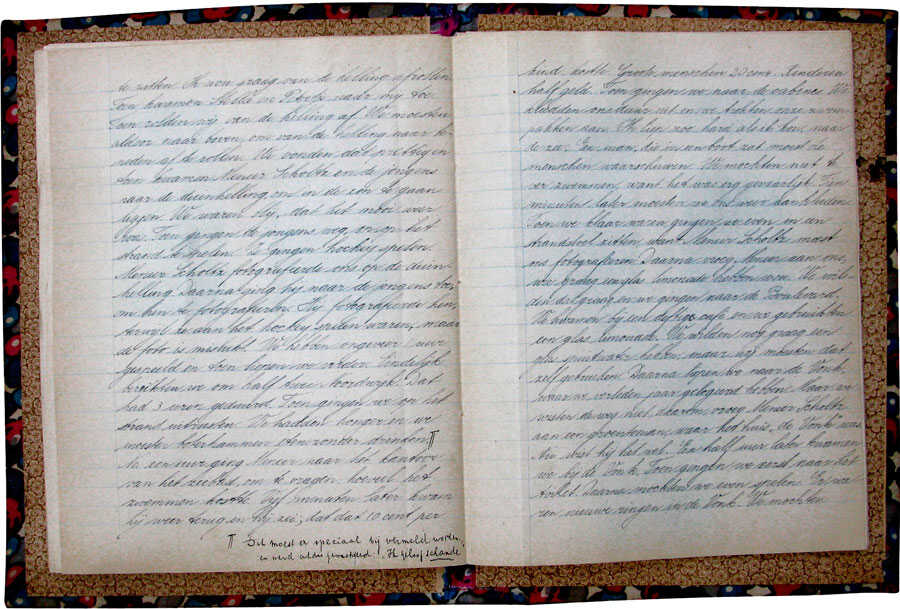 te zitten. Ik wou graag van de helling afrollen
Toen kwamen Hella en Pitutje naar mij toe.
Toen rolden wij van de helling af. We moesten
alsvor naar boven, om van de helling naar be-
neden af te rollen. We vonden dat prettig en
toen kwamen Meneer Scholtz en de jongens
naar de duinhelling om in de zon te gaan
liggen. We waren blij, dat het mooi weer
was. Toen gingen de jongens weg, om op het
strand te spelen. Ze gingen hockey spelen.
Meneer Scholtz fotografeerde ons op de duin-
helling. Daarna ging hij naar de jongens toe,
om hen te fotograferen. Hij fotografeerde hen,
terwijl ze aan het hockey spelen waren, maar
de foto is mislukt. We hebben ongeveer 1 uur
gespeeld en toen liepen we verder. Eindelijk
bereikten we om half twee Noordwijk. Dat
had 3 uren geduurd. Toen gingen we op het
strand uitrusten. We hadden honger en we
moesten boterhammen eten zonder drinken. ¶
Na een uur ging Meneer naar het kantoor
van het zeebad, om te vragen hoeveel het
zwemmen kostte. Vijf minuten later kwam
hij weer terug en hij zei, dat dat 10 cent per
¶ Dit moest er speciaal bij vermeld worden,
en werd aldus gemotiveerd: Ik geloof schande
kind kostte. Groote menschen 20 cent. Kinderen
half geld. Toen gingen we naar de cabines. We
kleedden ons daar uit en we trokken onze zwem-
pakken aan. Ik liep zoo hard als ik kon, naar
de zee. Een man, die in een boot zat moest de
menschen waarschuwen. We mochten niet te
ver zwemmen, want het was erg gevaarlijk. Tien
minuten later moesten we ons weer aankleeden.
Toen we klaar waren gingen we even in een
strandstoel zitten, want Meneer Scholtz moest
ons fotograferen. Daarna vroeg Meneer aan ons,
wie graag een glas limonade hebben wou. We wil-
den dat graag en we gingen naar de Boulevard.
We kwamen bij een deftige café en we gebruikten
een glas limonade. We wilden nog graag een
glas spuitwater hebben, maar wij moesten dat
zelf gebruiken. Daarna liepen we naar de Vonk,
waar we verleden jaar gelogeerd hebben. Maar we
wisten de weg niet, daarom vroeg Meneer Scholtz
aan een groenteman, waar het huis, de Vonk was.
Nu wist hij het wel. Een half uur later kwamen
we bij de Vonk. Toen gingen we eerst naar het
toilet. Daarna mochten we even spelen. Er wa-
ren nieuwe ringen in de Vonk. We mochten